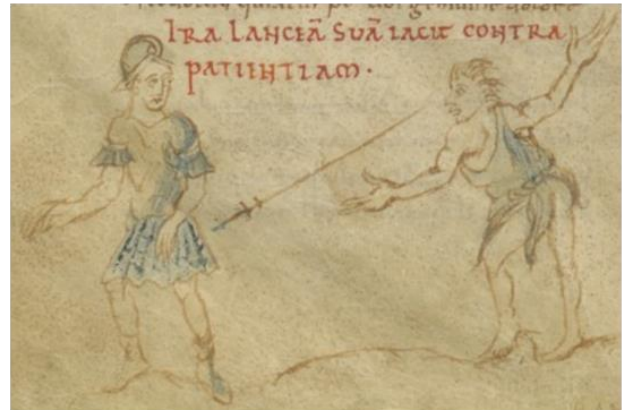 IRA LANCEÃ SUÃ IACIT CONTRA
PATIENTIAM.